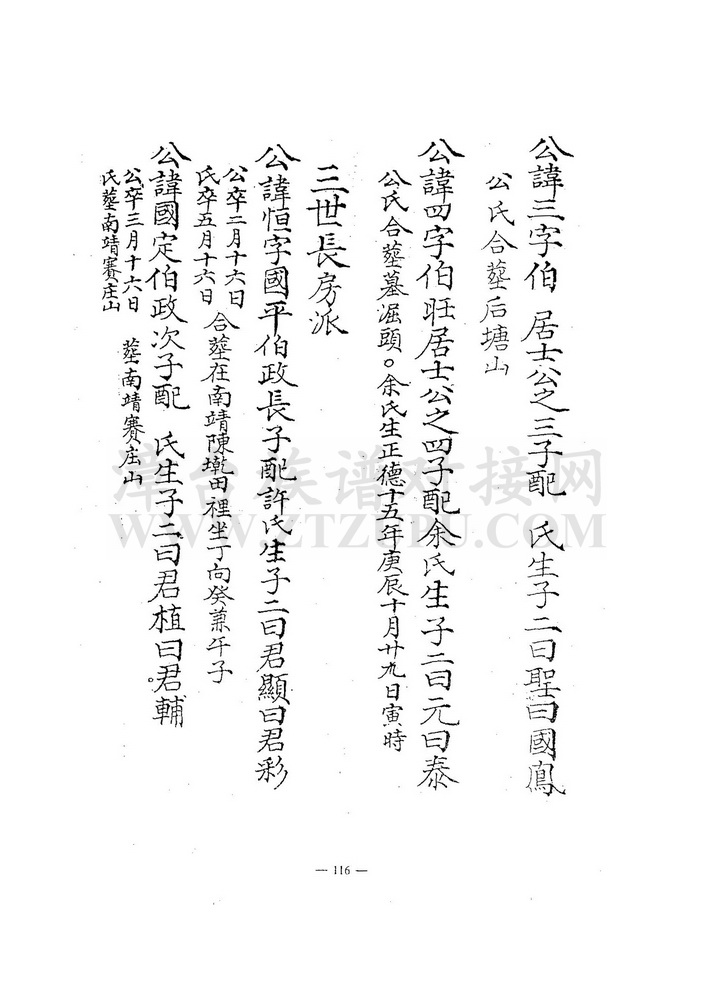 公諱三字伯 居士公之三子配 氏生子二曰聖曰國鳳
公氏合塟后塘山
公諱四字伯旺居士公之四子配余氏生子二曰元曰泰
公氏合塟墓崛頭。余氏生正德十五年庚辰十月廿九日寅時
三世長房派
公諱恒字國平伯政長子配許氏生子二曰君顯曰君彩
公卒二月十六日
氏卒五月十六日
合塟在南靖陳墘田裡坐丁向癸兼午子
公諱國定伯政次子配 氏生子二曰君植曰君輔。
公卒三月十六日 塟南靖賽庄山
氏塟南靖賽庄山
漳台族谱对接网
WWW.ZTZUPU.COM
— 116 —